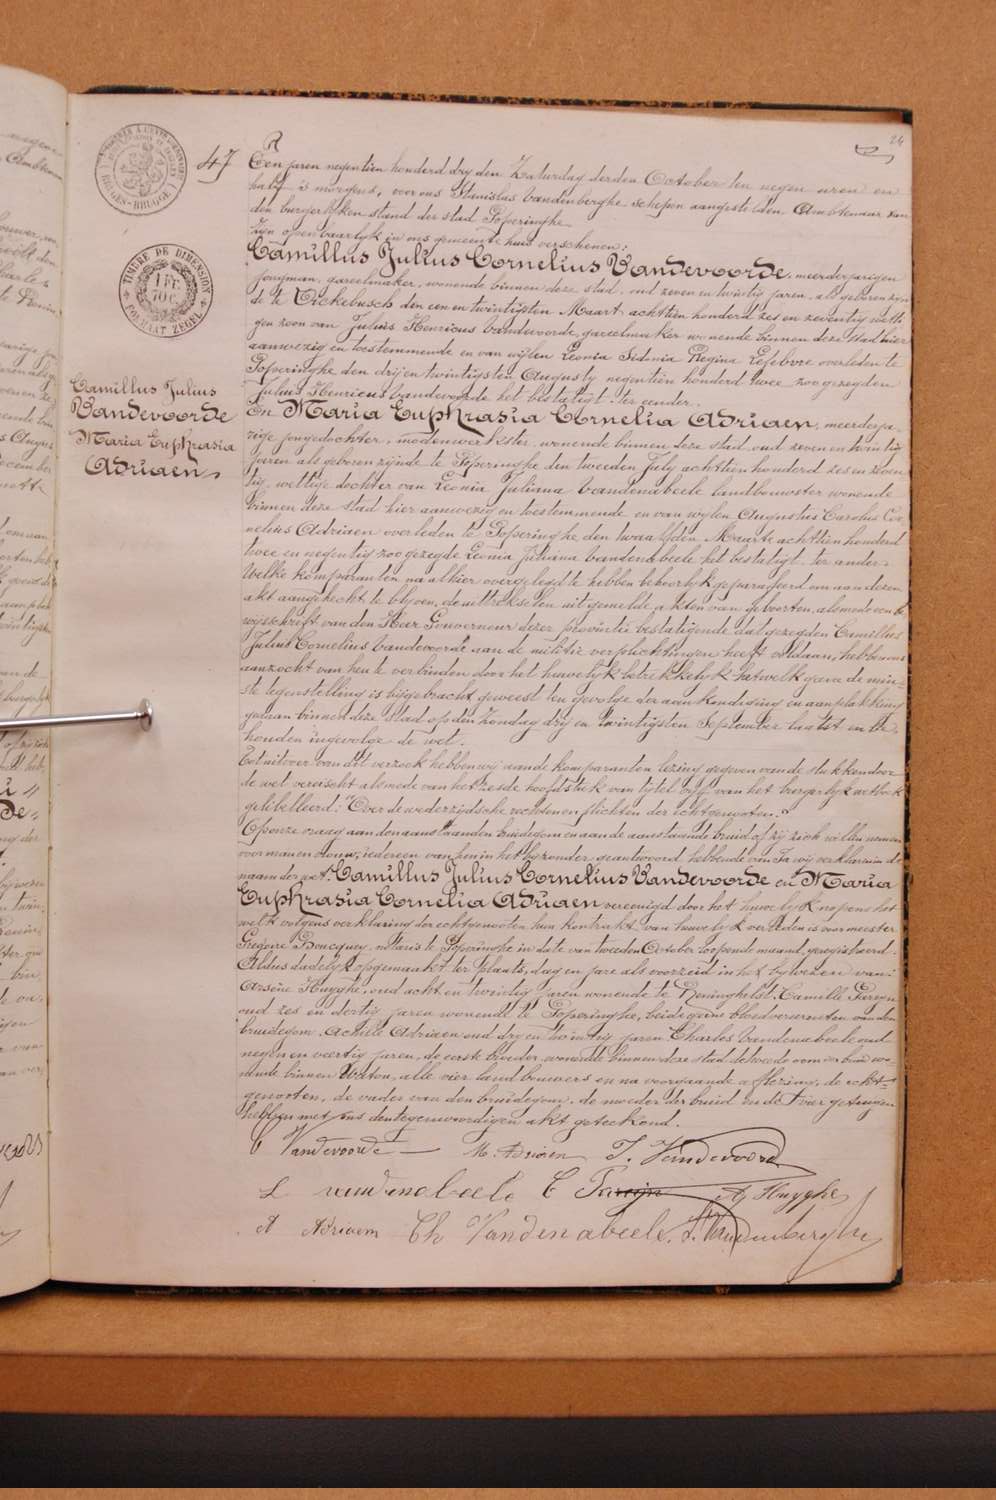 24
47
TIMBRE DE DIMENSION
1 FR. 70 C.
FORMAAT ZEGEL
BRUGES-BRUGGE
Camillus Julius
Vandevoorde
Maria Euphrasia
Adriaen
Een jaren negentien honderd dry den Zaturdag derden October ten negen uren en
half 's morgens, voor ons Stanislas Vandenberghe schepen aangestelden Ambtenaar van
den burgerlyken stand der stad Poperinghe
zyn openbaarlyk in ons gemeente huis verschenen:
Camillus Julius Cornelius Vandevoorde, meerderjarigen
jongman, gareelmaker, wonende binnen deze stad, oud zeven en twintig jaren, als geboren zyn
de te Vickebusch den een en twintigsten Maart achttien honderd zes en zeventig wetti
gen zoon van Julius Henricus Vandevoorde, gareelmaker wonende binnen deze stad hier
aanwezig en toestemmende en van wylen Leonia Sidonia Regina Lefebvre overleden te
Poperinghe den dry en twintigsten Augusty negentien honderd twee zoo gezegden
Julius Henricus Vandevoorde het bestatigt. Ter eender.
En Maria Euphrasia Cornelia Adriaen, meerderja-
rige jongedochter, modenwerkster, wonende binnen deze stad oud zeven en twintig
jaren als geboren zynde te Poperinghe den tweeden July achttien honderd zes en zeven
tig, wettige dochter van Leonia Juliana Vandenabeele landbouwster wonende
binnen deze stad hier aanwezig en toestemmende en van wylen Augustus Carolus Cor
nelius Adriaen overleden te Poperinghe den twaalfden Maarte achttien honderd
twee en negentig zoo gezegde Leonia Juliana Vandenabeele het bestatigt. ter ander.
Welke komparanten na alhier overgelegd te hebben behoorlyk geparafeerd om aan dezen
akt aangehecht te blyven, de uittrekselen uit gemelde akten van geboorten, alsmede een be
wysschrift van den Heer Gouverneur dezer provintie bestatigende dat gezegden Camillus
Julius Cornelius Vandevoorde aan de militie verplichtingen heeft voldaan, hebben ons
aanzocht van hen te verbinden door het huwelyk betrekkelyk hetwelk geene de min-
ste tegenstelling is bygebracht geweest ten gevolge der aankondiging en aanplakking
gedaan binnen deze stad op den Zondag dry en twintigsten September laatst en be
houden ingevolge de wet.
Tot uitvoer van dit verzoek hebben wy aan de komparanten lezing gegeven van de stukken door
de wet vereischt alsmede van het zesde hoofdstuk van tytel vyf van het burgerlyk wetboek
getitelleerd: "Over de wederzydsche rechten en plichten der echtgenoten."
Op onze vraag aan den aanstaanden bruidegom en aan de aanstaande bruid of zy zich willen nemen
voor man en vrouw, iedereen van hen in het byzonder geantwoord hebbende van Ja wy verklaren in de
naam der wet Camillus Julius Cornelius Vandevoorde en Maria
Euphrasia Cornelia Adriaen vereenigd door het huwelyk nopens het
welk volgens verklaring der echtgenoten hun kontrakt van huwelyk verleden is voor meester
Gregoire Boucquey, notaris te Poperinghe in date van tweeden October loopende maand geregistreerd.
Aldus dadelyk opgemaakt ter plaats, dag en jare als voorzeid in het bywezen van:
Arsène Huyghe, oud acht en twintig jaren wonende te Reninghelst, Camille Fareyn
oud zes en dertig jaren wonende te Poperinghe, beide geene bloedverwanten van den
bruidegom. Achille Adriaen oud dry en twintig jaren Charles Vandenabeele oud
negen en veertig jaren, de eerste broeder wonende binnen deze stad de tweede oom der bruid wo
nende binnen Watou, alle vier landbouwers en na voorgaande aflezing, de echt-
genooten, de vader van den bruidegom, de moeder der bruid en de vier getuigen
hebben met ons den tegenwoordigen akt geteekend.
C Vandevoorde M. Adriaen J. Vandevoorde
L vandenabeele C Fareyn A Huyghe
A Adriaen Ch Vandenabeele. S. Vandenberghe